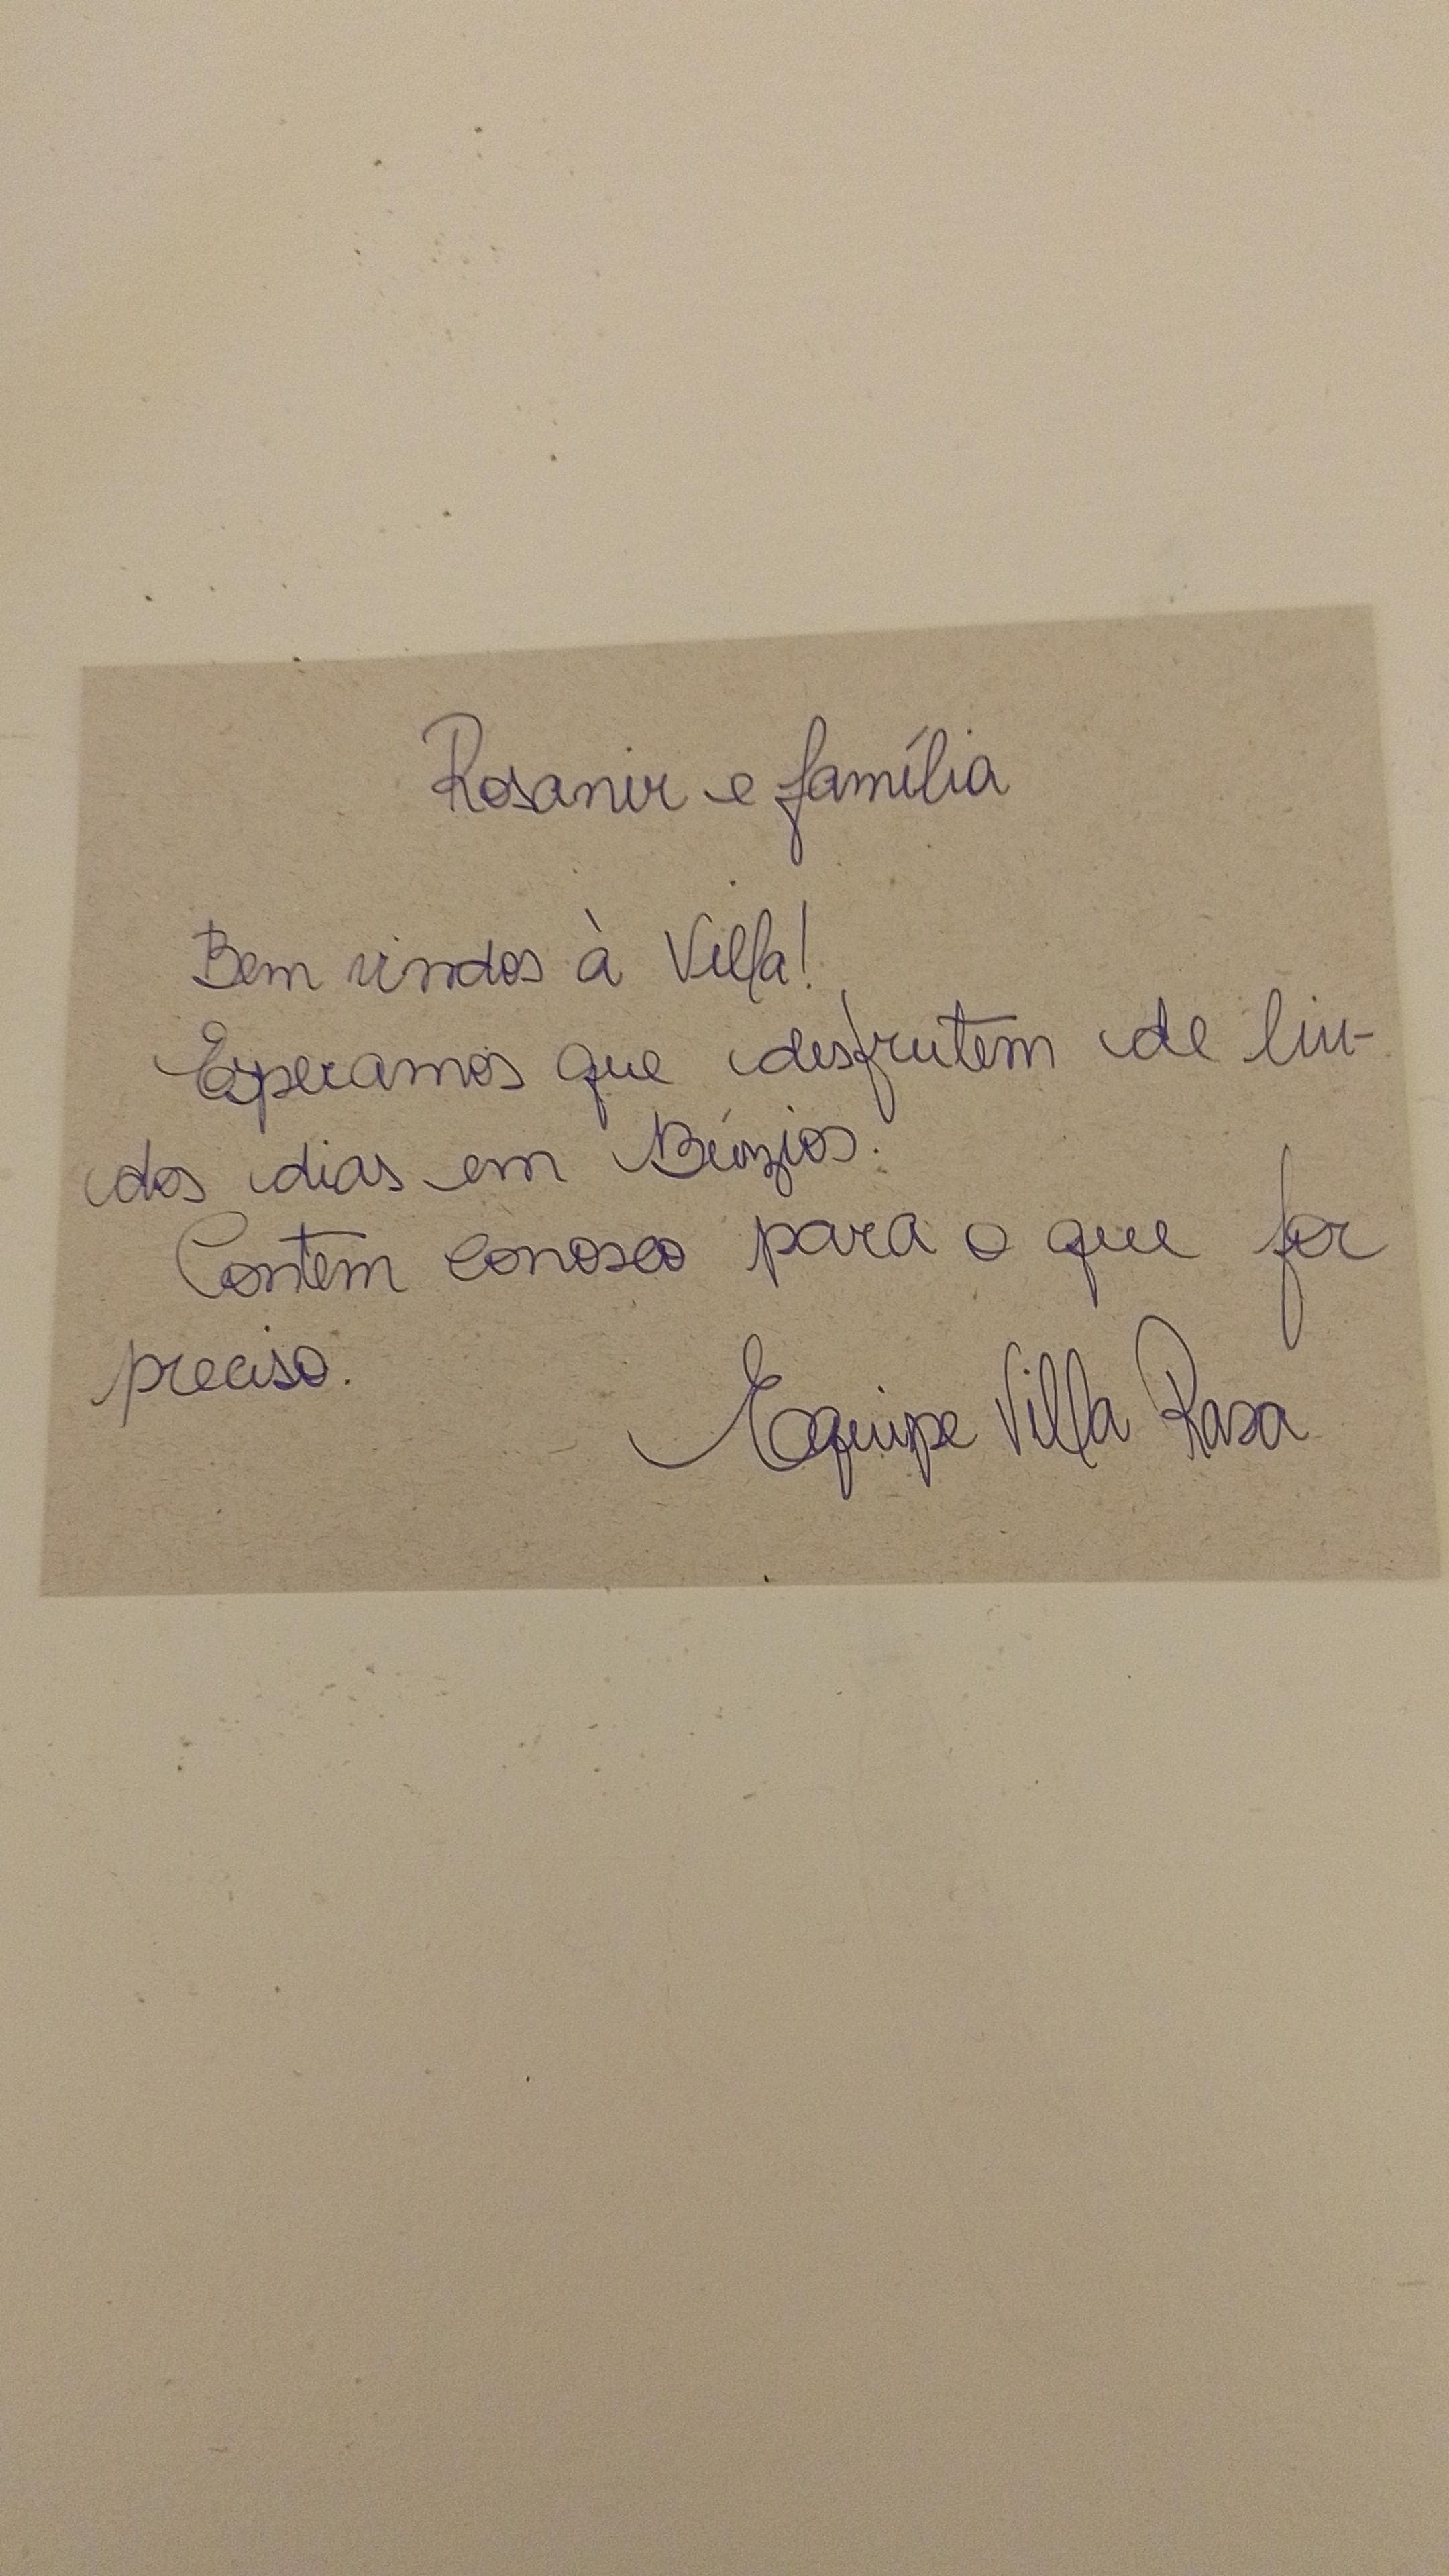 Rosanir e família
Bem vindos à Villa!
Esperamos que desfrutem de lin-
dos dias em Búzios.
Contem conosco para o que for
preciso.
Equipe Villa Rasa